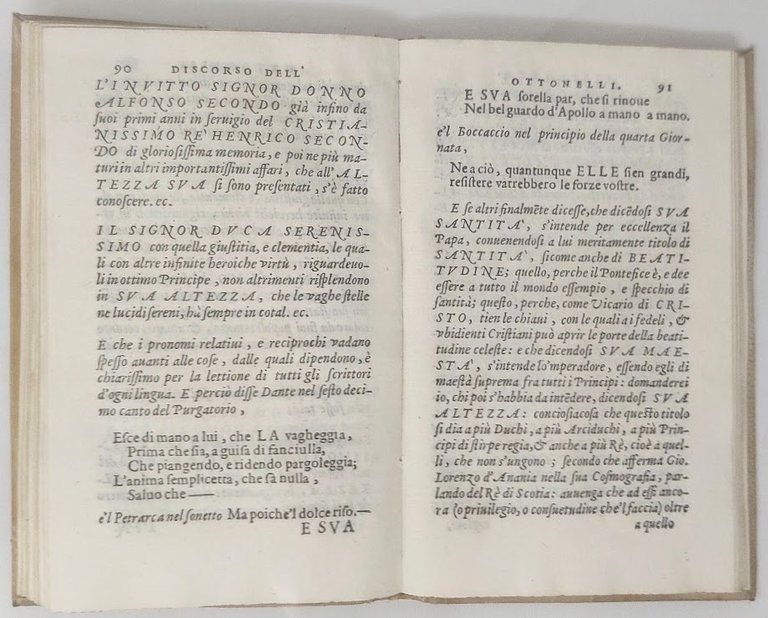 90 DISCORSO DELL'
L'INVITTO SIGNOR DONNO
ALFONSO SECONDO già infino da
suoi primi anni in seruigio del CRISTIA-
NISSIMO RE' HENRICO SECON-
DO di gloriosissima memoria, e poi ne più ma-
turi in altri importantissimi affari, che all'AL-
TEZZA SVA si sono presentati, s'è fatto
conoscere. ec.
IL SIGNOR DVCA SERENIS-
SIMO con quella giustitia, e clementia, le qua-
li con altre infinite heroiche virtù, riguardeuo-
li in ottimo Principe, non altrimenti risplendono
in SVA ALTEZZA, che le vaghe stelle
ne lucidi sereni, hà sempre in cotal. ec.
E che i pronomi relatiui, e reciprochi vadano
spesso auanti alle cose, dalle quali dipendono, è
chiarissimo per la lettione di tutti gli scrittori
d'ogni lingua. E perciò disse Dante nel sesto deci-
mo canto del Purgatorio,
Esce di mano a lui, che LA vagheggia,
Prima che sia, a guisa di fanciulla,
Che piangendo, e ridendo pargoleggia;
L'anima semplicetta, che sà nulla,
Saluo che ——
e'l Petrarca nel sonetto Ma poiche'l dolce riso.—
E SVA
OTTONELLI. 91
E SVA sorella par, che si rinoue
Nel bel guardo d'Apollo a mano a mano.
e'l Boccaccio nel principio della quarta Gior-
nata,
Ne a ciò, quantunque ELLE sien grandi,
resistere varrebbero le forze vostre.
E se altri finalmẽte dicesse, che dicẽdosi SVA
SANTITA', s'intende per eccellenza il
Papa, conuenendosi a lui meritamente titolo di
SANTITA', sicome anche di BEATI-
TVDINE; quello, perche il Pontefice è, e dee
essere a tutto il mondo essempio, e specchio di
santità; questo, perche, come Vicario di CRI-
STO, tien le chiaui, con le quali a i fedeli, &
vbidienti Cristiani può aprire le porte della beati-
tudine celeste: e che dicendosi SVA MAE-
STA', s'intende lo'mperadore, essendo egli di
maestà suprema fra tutti i Principi: domanderei
io, chi poi s'habbia da intẽdere, dicendosi SVA
ALTEZZA: conciosiacosa che questo titolo
si dia a più Duchi, a più Arciduchi, a più Prin-
cipi di stirpe regia, & anche a più Rè, cioè a quel-
li, che non s'ungono; secondo che afferma Gio.
Lorenzo d'Anania nella sua Cosmografia, par-
lando del Rè di Scotia: auuenga che ad essi anco-
ra (o priuilegio, o consuetudine che'l faccia) oltre
a quello